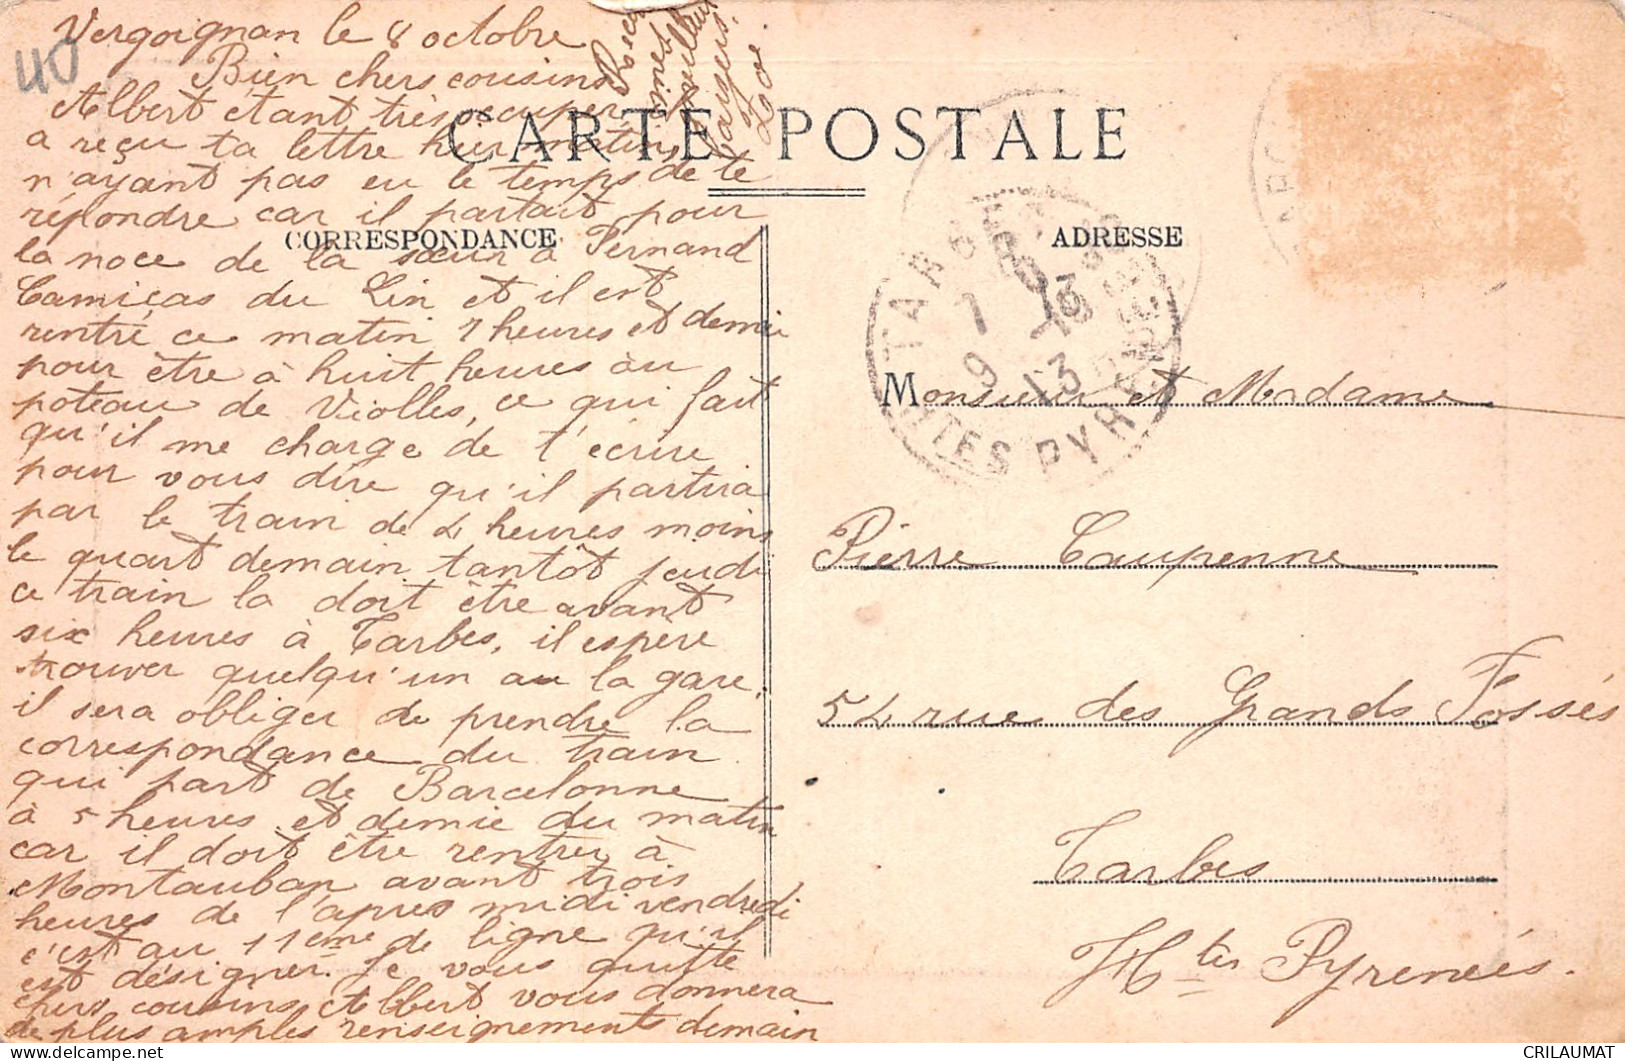 40
Vergoignan le 8 octobre
Bien chers cousins
Albert étant très occuper et
a reçu ta lettre hier matin,
n'ayant pas eu le temps de te
répondre car il partait pour
la noce de la sœur a Fernand
Camiças du Lin et il est
rentré ce matin 7 heures et demie
pour être à huit heures au
poteau de Violles, ce qui fait
qu'il me charge de t'écrire
pour vous dire qu'il partira
par le train de 2 heures moins
le quart demain tantôt jeudi
ce train la doit être avant
six heures à Tarbes, il espère
trouver quelqu'un au la gare,
il sera obliger de prendre la
correspondance du train
qui part de Barcelonne
à 5 heures et demie du matin
car il doit être rentrer à
Montauban avant trois
heures de l'apres midi vendredi
c'est au 11eme de ligne qu'il
est désigner. Je vous quitte
chers cousins Albert vous donnera
de plus amples renseignements demain
baisers.
Zoé.
CARTE POSTALE
CORRESPONDANCE
ADRESSE
TARBES
HTES PYRÉNÉES
9 13
Monsieur et Madame
Pierre Taupenne
52 rue des Grands Fossés
Tarbes
Htes Pyreneés.
CRILAUMAT